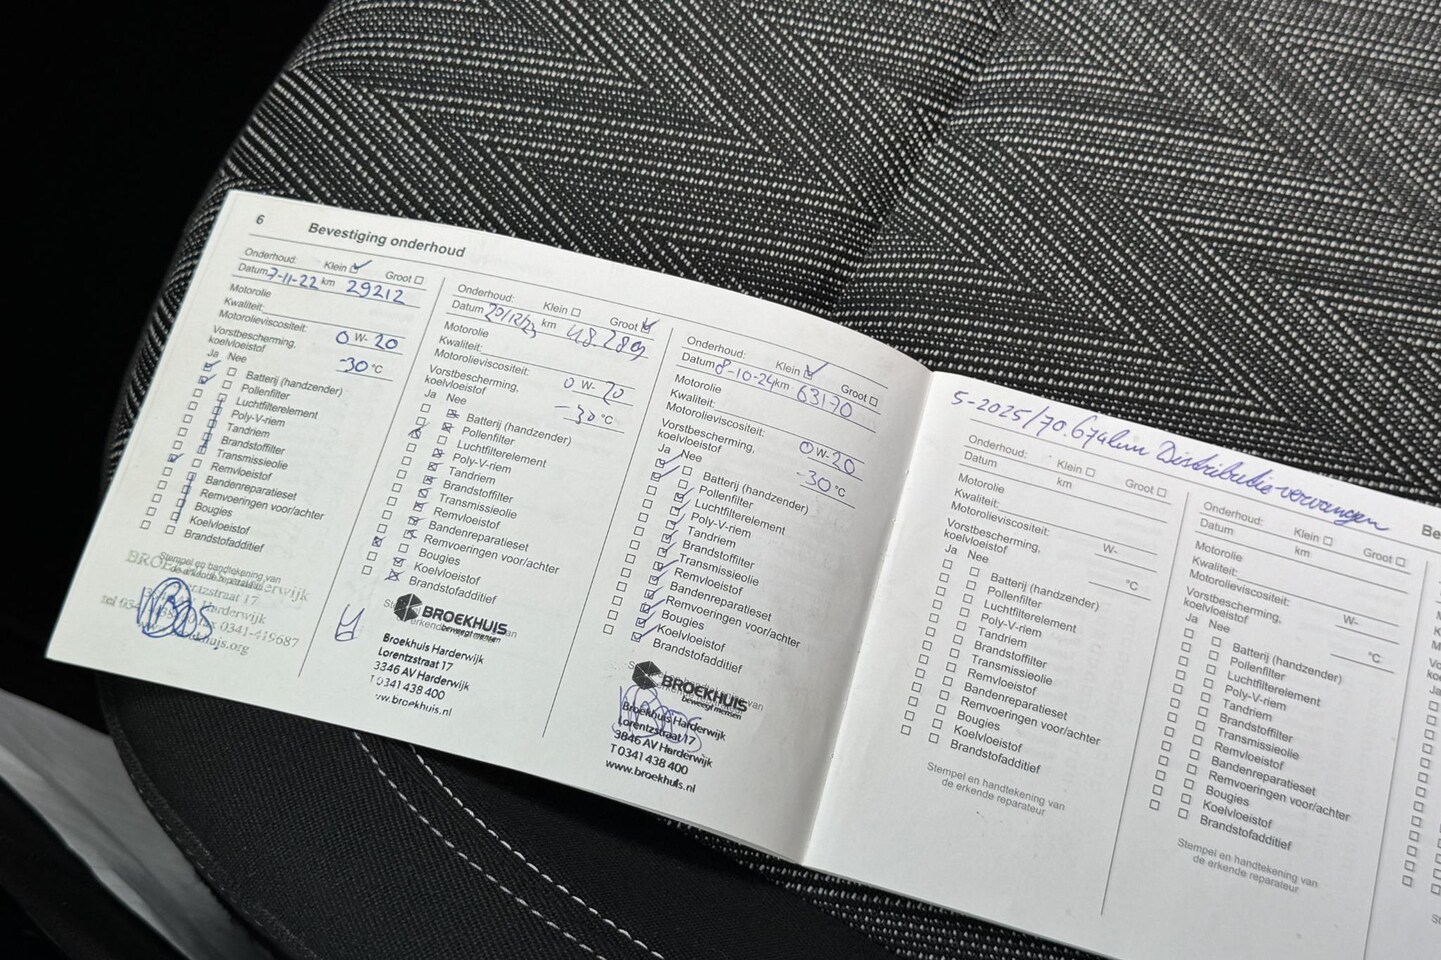 6
Bevestiging onderhoud
Onderhoud: Klein Groot
Datum 7-11-22 km 29212
Motorolie
Kwaliteit:
Motorolieviscositeit: 0 W- 20
Vorstbescherming,
koelvloeistof -30 °C
Ja Nee
Batterij (handzender)
Pollenfilter
Luchtfilterelement
Poly-V-riem
Tandriem
Brandstoffilter
Transmissieolie
Remvloeistof
Bandenreparatieset
Remvoeringen voor/achter
Bougies
Koelvloeistof
Brandstofadditief
Stempel en handtekening van
de erkende reparateur
Harderwijk
Lorentzstraat 17
Harderwijk
0341-419687
Onderhoud: Klein Groot
Datum 20/12/23 km 48289
Motorolie
Kwaliteit:
Motorolieviscositeit: 0 W- 20
Vorstbescherming,
koelvloeistof -30 °C
Ja Nee
Batterij (handzender)
Pollenfilter
Luchtfilterelement
Poly-V-riem
Tandriem
Brandstoffilter
Transmissieolie
Remvloeistof
Bandenreparatieset
Remvoeringen voor/achter
Bougies
Koelvloeistof
Brandstofadditief
BROEKHUIS
beweegt mensen
Broekhuis Harderwijk
Lorentzstraat 17
3846 AV Harderwijk
T 0341 438 400
www.broekhuis.nl
Onderhoud: Klein Groot
Datum 8-10-24 km 63170
Motorolie
Kwaliteit:
Motorolieviscositeit: 0 W- 20
Vorstbescherming,
koelvloeistof -30 °C
Ja Nee
Batterij (handzender)
Pollenfilter
Luchtfilterelement
Poly-V-riem
Tandriem
Brandstoffilter
Transmissieolie
Remvloeistof
Bandenreparatieset
Remvoeringen voor/achter
Bougies
Koelvloeistof
Brandstofadditief
BROEKHUIS
beweegt mensen
Broekhuis Harderwijk
Lorentzstraat 17
3846 AV Harderwijk
T 0341 438 400
www.broekhuis.nl
5-2025/70.674km Distributie vervangen
Onderhoud: Klein Groot
Datum km
Motorolie
Kwaliteit:
Motorolieviscositeit: W-
Vorstbescherming,
koelvloeistof °C
Ja Nee
Batterij (handzender)
Pollenfilter
Luchtfilterelement
Poly-V-riem
Tandriem
Brandstoffilter
Transmissieolie
Remvloeistof
Bandenreparatieset
Remvoeringen voor/achter
Bougies
Koelvloeistof
Brandstofadditief
Stempel en handtekening van
de erkende reparateur
Onderhoud: Klein Groot
Datum km
Motorolie
Kwaliteit:
Motorolieviscositeit: W-
Vorstbescherming,
koelvloeistof °C
Ja Nee
Batterij (handzender)
Pollenfilter
Luchtfilterelement
Poly-V-riem
Tandriem
Brandstoffilter
Transmissieolie
Remvloeistof
Bandenreparatieset
Remvoeringen voor/achter
Bougies
Koelvloeistof
Brandstofadditief
Stempel en handtekening van
de erkende reparateur